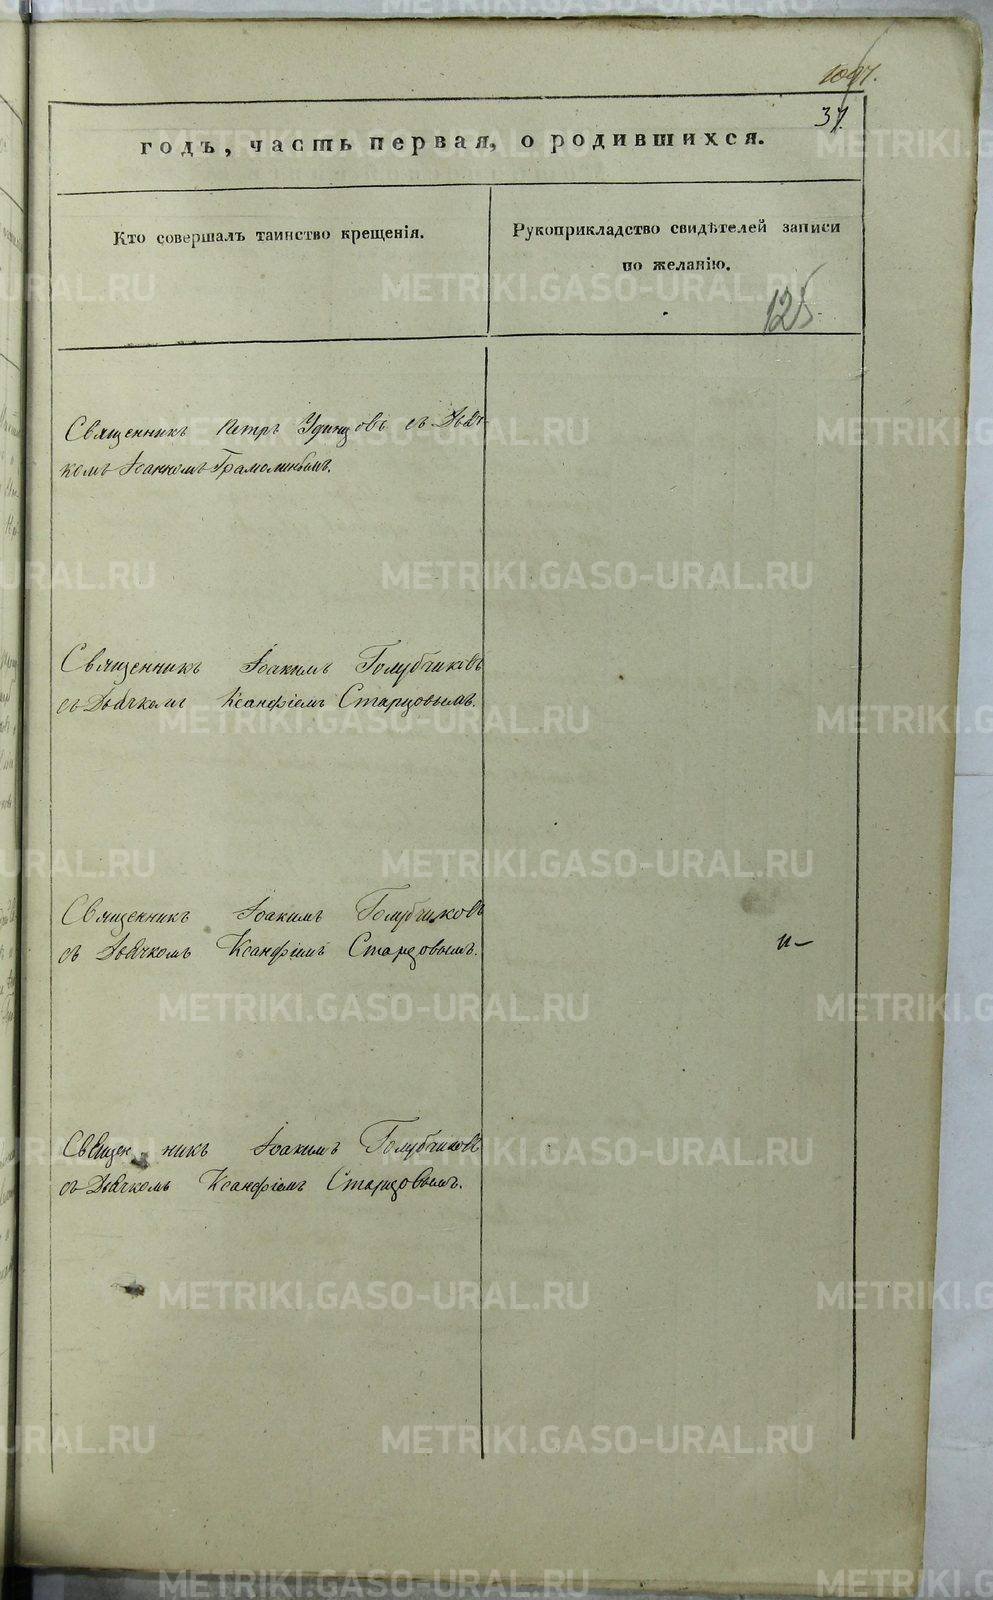 37.
годъ, часть первая, о родившихся.
Кто совершалъ таинство крещенія.
Рукоприкладство свидѣтелей записи
по желанію.
125
Священникъ Петръ Удинцовъ съ Дьяч-
комъ Іоанномъ
Священникъ Іоакимъ Голубчиковъ
съ Дьячкомъ Ксанфіемъ Старцовымъ.
Священникъ Іоакимъ Голубчиковъ
съ Дьячкомъ Ксанфіемъ Старцовымъ.
Священ никъ Іоакимъ Голубчиковъ
съ Дьячкомъ Ксанфіемъ Старцовымъ.
METRIKI.GASO-URAL.RU